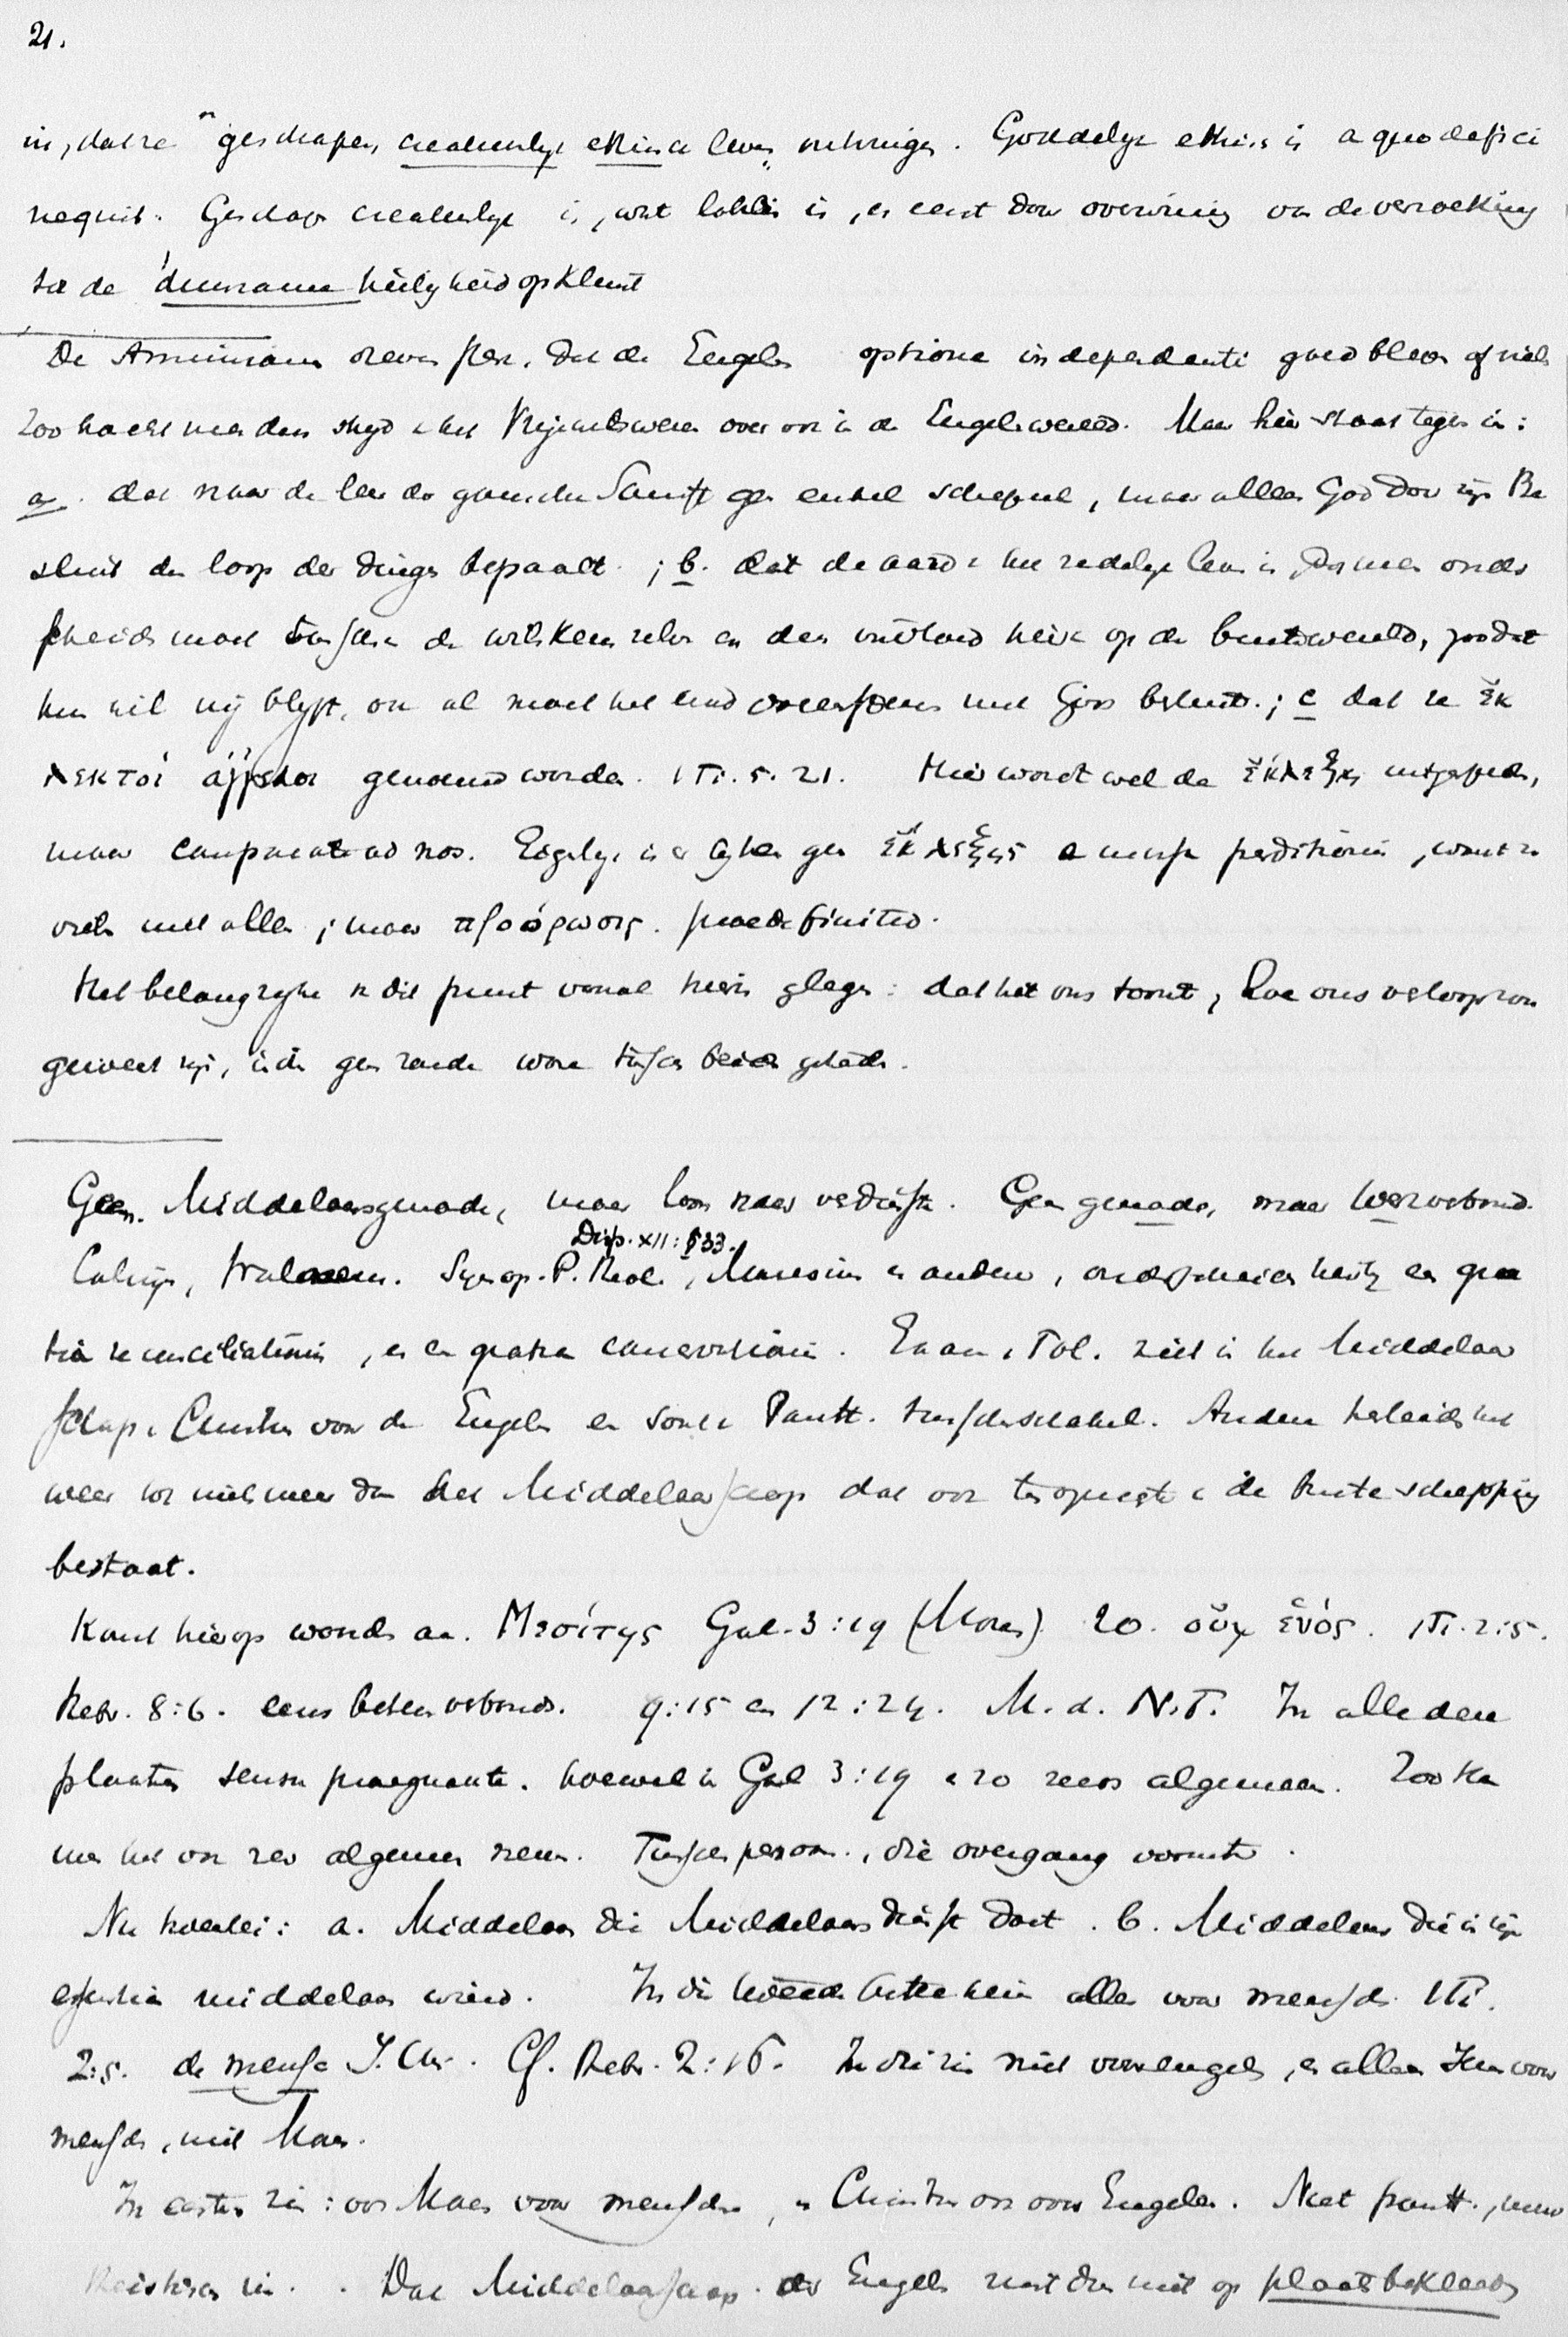 21.
in, dat ze "geschapen, creatuurlijk ethisch leven" ontvingen. Goddelijk ethisch is a quo defici
nequit. Geschapen creatuurlijk is, wat labilis is, en eerst door overwinning van de verzoeking
tot de duurzame heiligheid opklimt
De Arminianen dreven sterk, dat de Engelen optione independenti goed bleven of niet
Zoo bracht men den strijd het Vrijewilswezen over ook in de Engelenwereld. Maar hier staat tegen in:
a. dat naar de leer der gansche Schrift geen enkel schepsel, maar alleen God door zijn Be
sluit den loop der dingen bepaalt.; b. dat de aard v. het redelijk leven is, dat men onder
scheiden moet tusschen de wilskeus zelve en den invloed hiervan op de buitenwereld, zoodat
hun wil vrij blijft, ook al moet het eind overeenstemmen met Gods besluit.; c dat ze ἐκ
λεκτοί ἄγγελοι genoemd worden. 1 Ti. 5. 21. Hier wordt wel de ἔκλεξις
maar comparate ad nos. Eigenlijk is er bij hen geen ἔκλεξις e massa perditionis, want ze
vielen niet allen; maar προόρισις. praedefinitio.
Het belangrijke in dit punt vooral hierin gelegen: dat het ons toont, hoe ons verloop zou
geweest zijn, indien geen zonde ware tusschen beiden getreden.
Geen Middelaarsgenade, maar loon naar verdienste. Geen genade, maar Werkverbond.
Disp. XII: § 33.
Calvijn, Synop. P. Theol., Maresius en anderen, onderscheiden hierbij een gra
tia reconciliationis, en een gratia conservationis. Tol. ziet in het Middelaar
schap v. Christus voor de Engelen een soort Panth. tusschenschakel. Anderen herleiden het
weer tot niets meer dan het Middelaarschap dat ook ten opzichte v. de brute schepping
bestaat.
Komt hierop vooral aan. Μεσίτης Gal. 3:19 (Mozes) 20. οὐχ ἑνός. 1 Ti. 2:5.
Hebr. 8:6. eens beteren verbonds. 9:15 en 12:24. M. d. N.T. In alle deze
plaatsen sensu praegnante. hoewel in Gal 3:19 en 20 reeds algemeen. Zoo kan
men het ook zeer algemeen nemen. Tusschenpersoon, die overgang vormt.
Nu tweeërlei: a. Middelaar die Middelaarsdienst doet. b. Middelaar die in zijn
essentia middelaar wierd. In die tweede beteekenis alleen voor menschen 1 Ti.
2:5. de mensch J. Chr. Cf. Hebr. 2:16. In dien zin niet voor engelen, en alleen Hem voor
menschen, niet Mozes.
In eersten zin: ook Mozes voor menschen, en Christus ook voor Engelen. Niet panth., maar
theistisch in. Dat Middelaarschap der Engelen rust dus niet op plaatsbekleeding